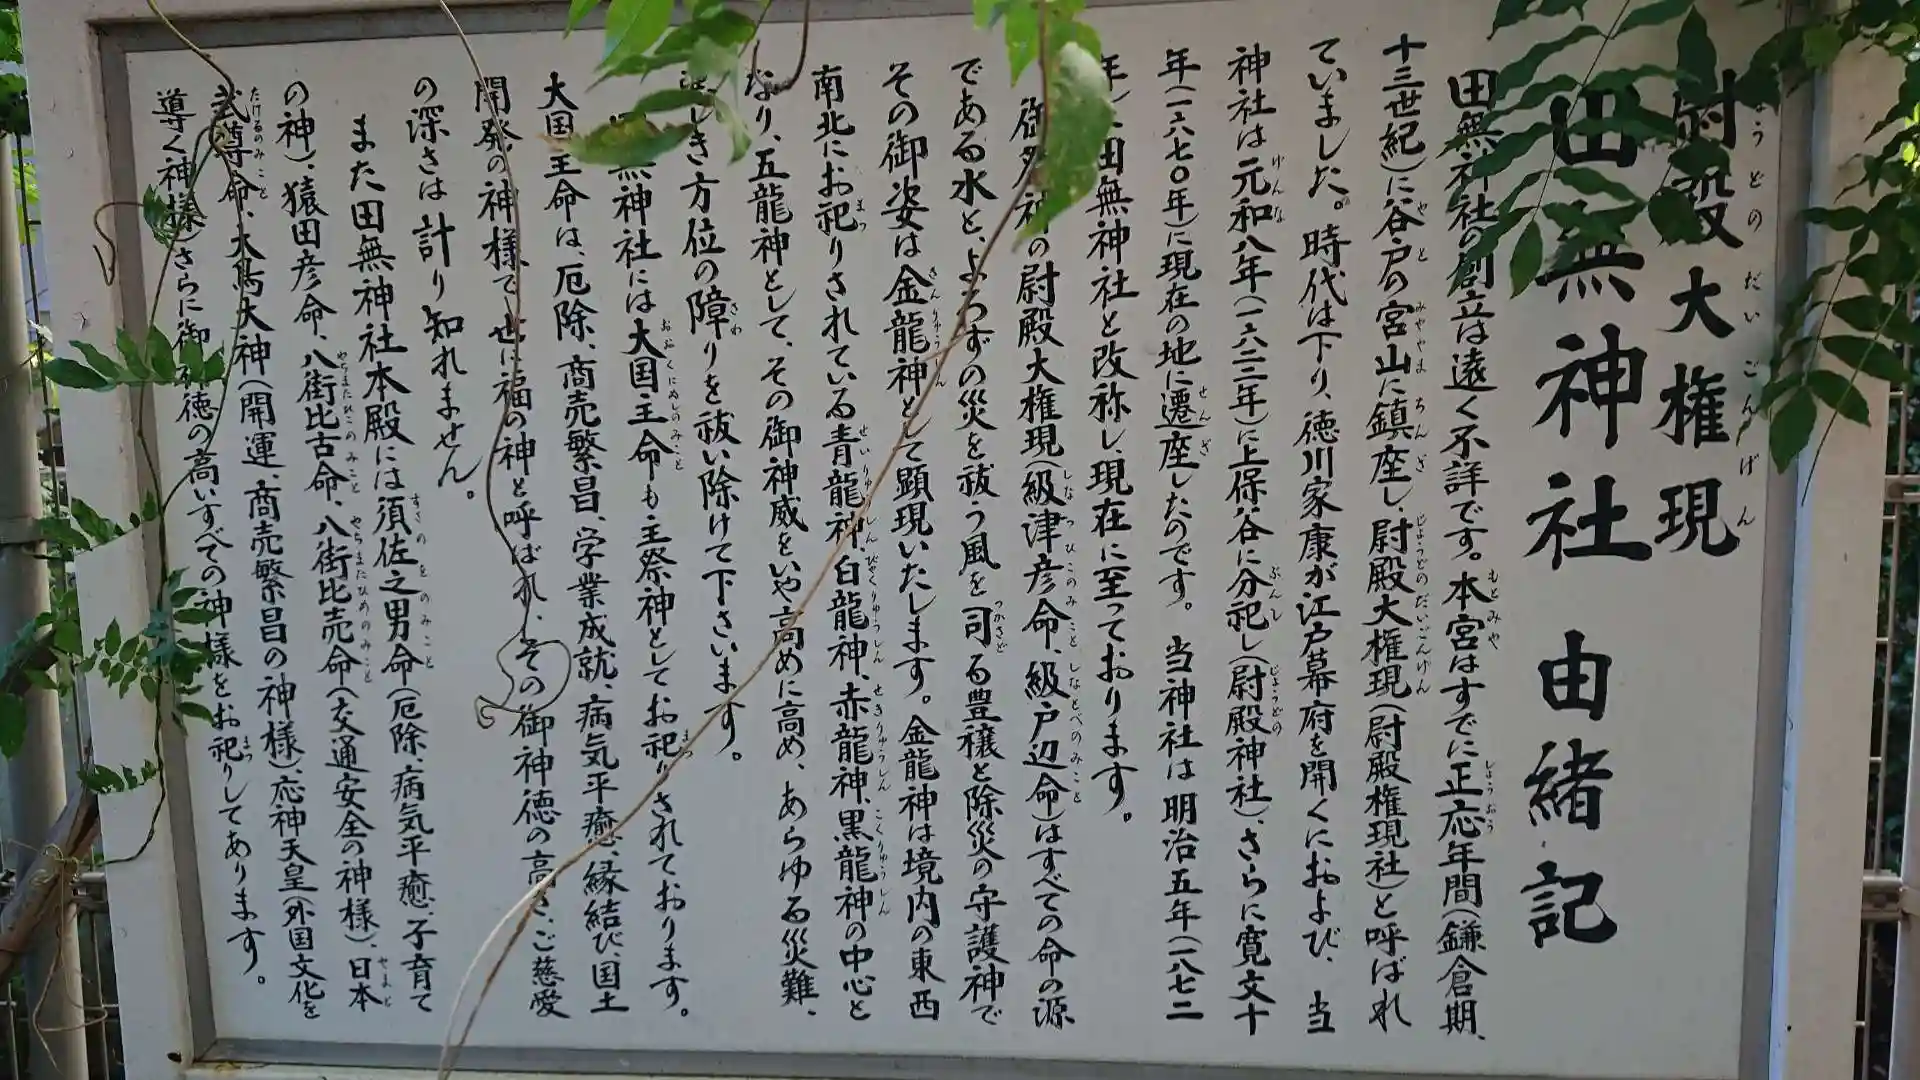 尉殿大権現
田無神社 由緒記
田無神社の創立は遠く不詳です。本宮はすでに正応年間(鎌倉期、
十三世紀)に谷戸の宮山に鎮座し、尉殿大権現(尉殿権現社)と呼ばれ
ていました。時代は下り、徳川家康が江戸幕府を開くにおよび、当
神社は元和八年(一六二二年)に上保谷に分祀し(尉殿神社)、さらに寛文十
年(一六七〇年)に現在の地に遷座したのです。当神社は明治五年(一八七二
年)に田無神社と改称し、現在に至っております。
御祭神の尉殿大権現(級津彦命、級戸辺命)はすべての命の源
である水と、よろずの災を祓う風を司る豊穣と除災の守護神で
その御姿は金龍神として顕現いたします。金龍神は境内の東西
南北にお祀りされている青龍神、白龍神、赤龍神、黒龍神の中心と
なり、五龍神として、その御神威をいや高めに高め、あらゆる災難、
しき方位の障りを祓い除けて下さいます。
無神社には大国主命も主祭神としてお祀りされております。
大国主命は、厄除、商売繁昌、学業成就、病気平癒、縁結び、国土
開発の神様で世に福の神と呼ばれ、その御神徳の高さ、ご慈愛
の深さは計り知れません。
また田無神社本殿には須佐之男命(厄除、病気平癒、子育て
の神)、猿田彦命、八街比古命、八街比売命(交通安全の神様)、日本
武尊命、大鳥大神(開運、商売繁昌の神様)、応神天皇(外国文化を
導く神様)さらに御神徳の高いすべての神様をお祀りしてあります。